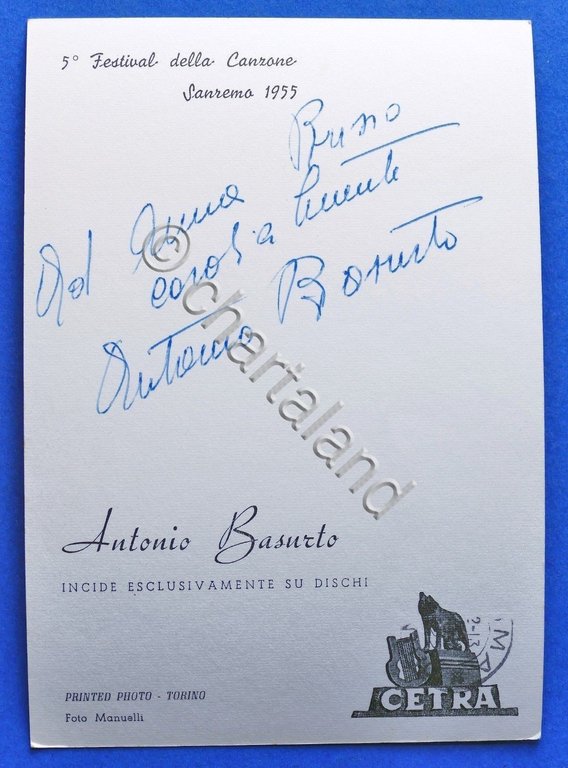 5° Festival della Canzone
Sanremo 1955
Ad Anna Bruno
Antonio Basurto
© chartaland
Antonio Basurto
INCIDE ESCLUSIVAMENTE SU DISCHI
CETRA
PRINTED PHOTO - TORINO
Foto Manuelli